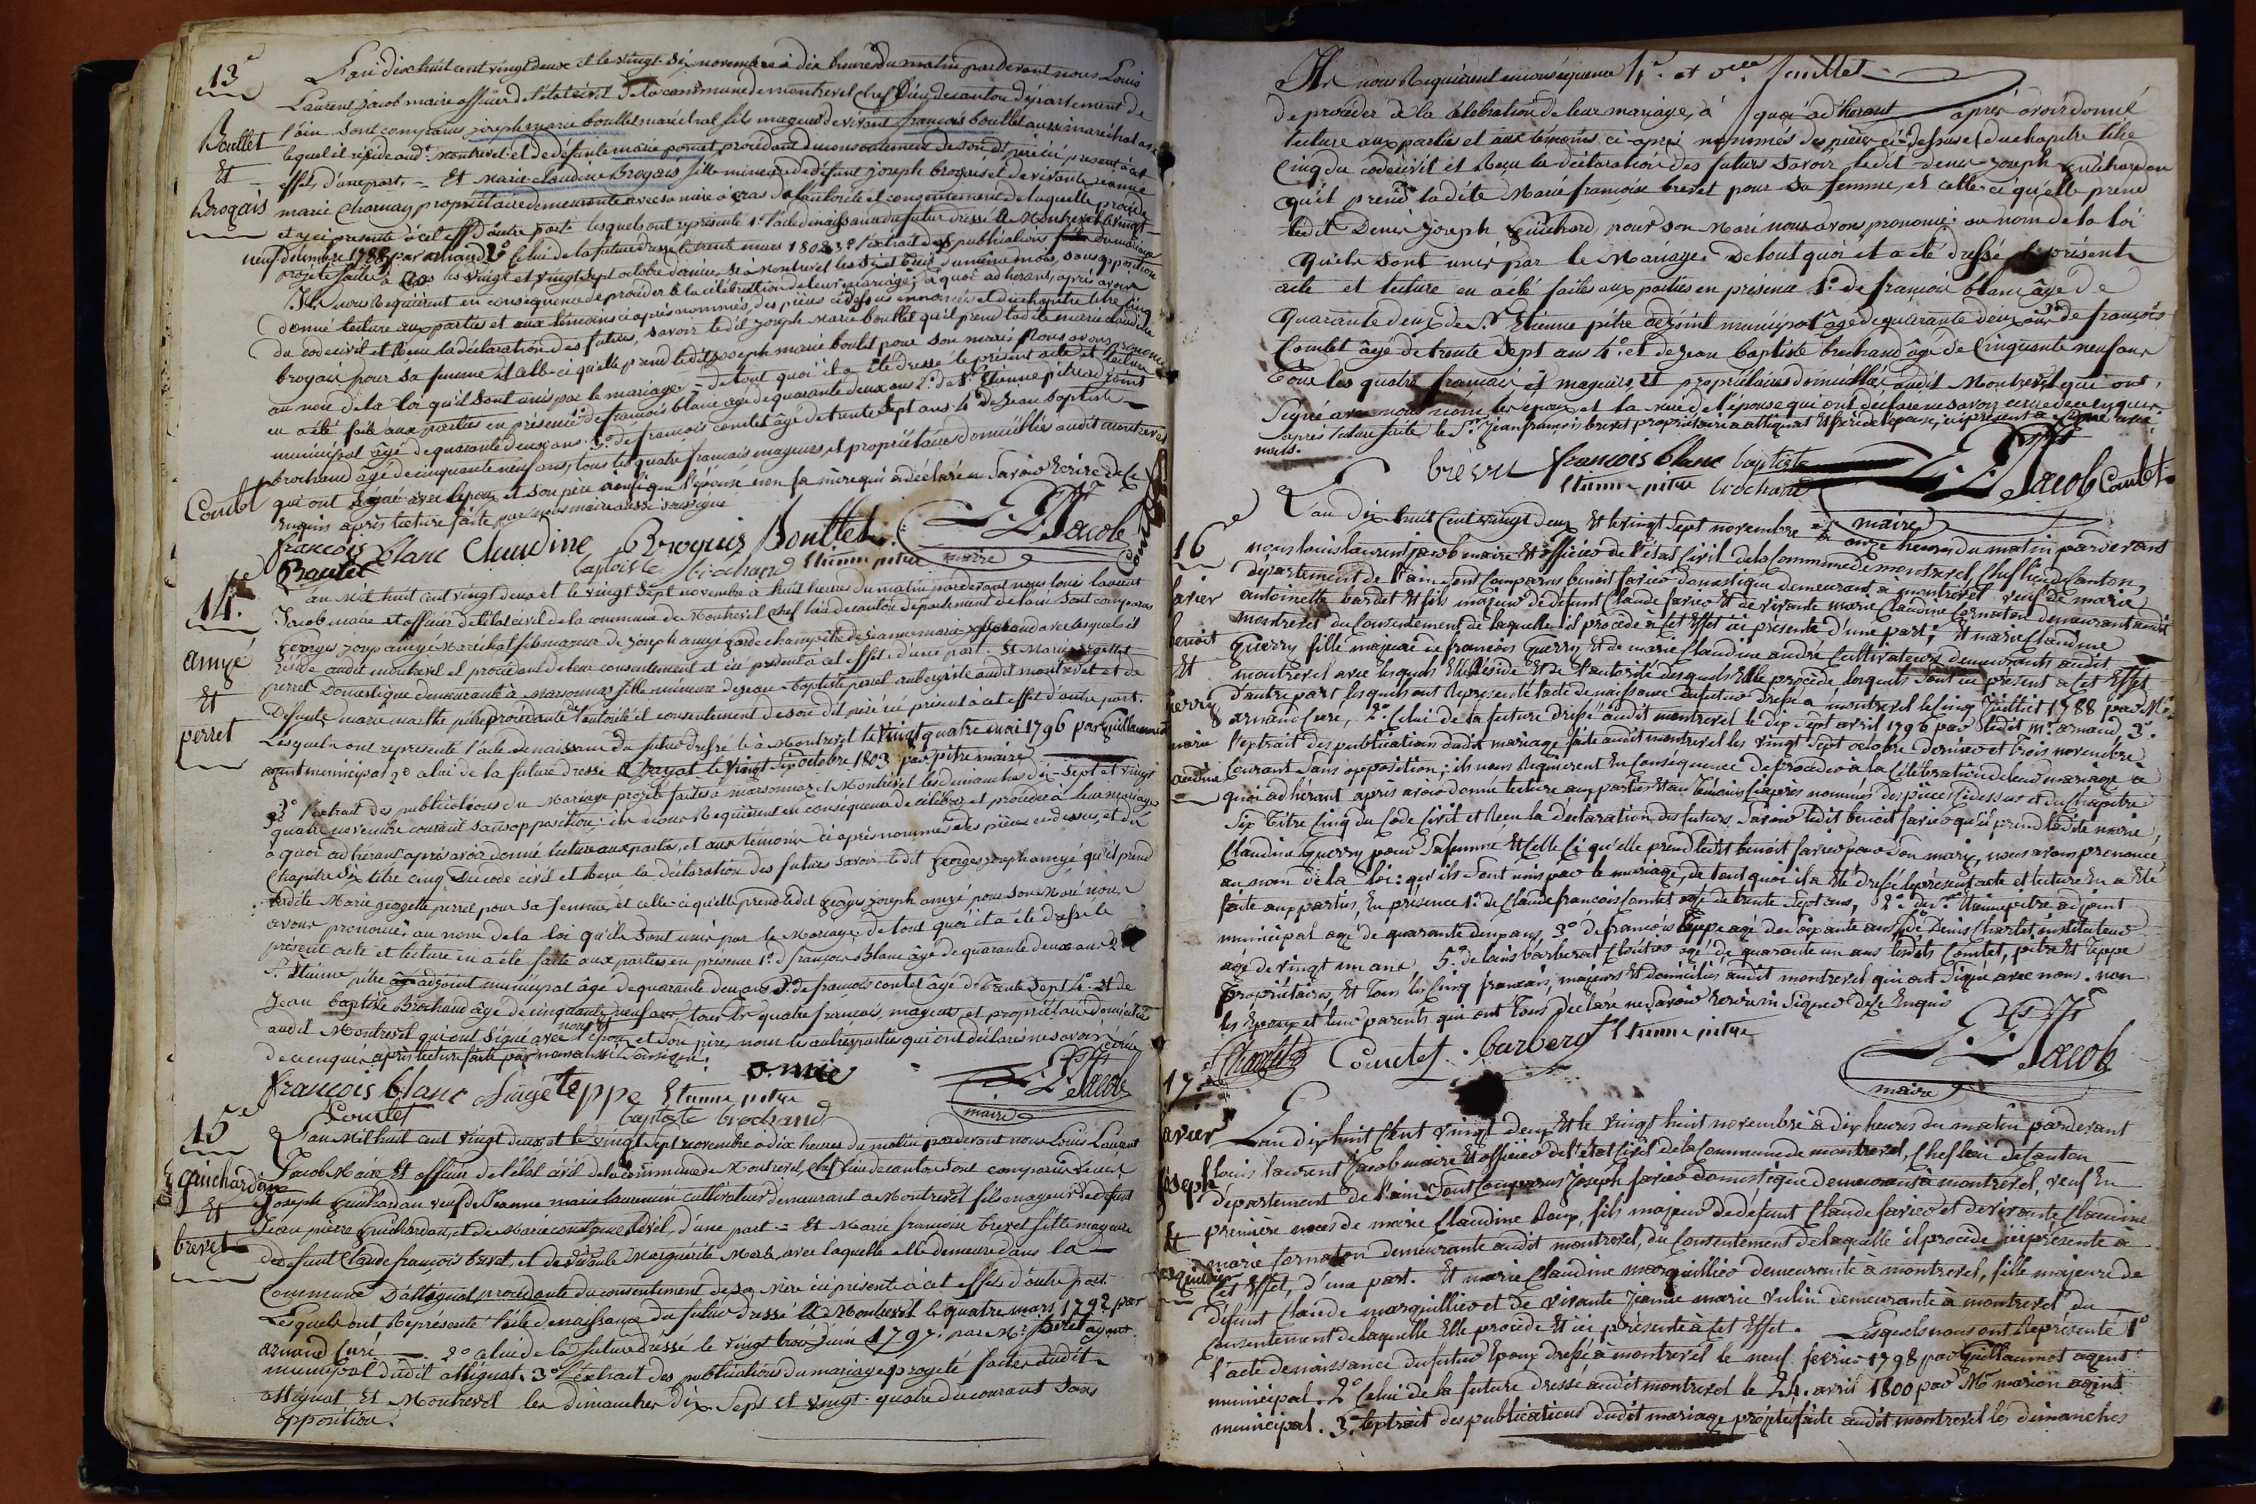 13e
Boullet
Et
Brogais
L'an dix huit cent vingt deux et le vingt six novembre à dix heures du matin pardevant nous Louis
Laurent Jacob maire officier de l'état civil de la commune de montrevel chef lieu de canton département de
l'ain sont comparus joseph marie boullet marechal fils majeur de vivant françois boullet aussi marechal avec
lequel il réside audt montrevel et de défunte marie ponet, procédant du consentement de son dt père ici présent à cet
effet d'une part. = Et Marie claudine Brogais fille mineure de défunt joseph brogais et de vivante jeanne
marie Charnay propriétaire demeurante avec sa mère à cras de l'autorité et consentement de laquelle procède
et ici présente à cet effet d'autre part lesquels ont représenté 1º l'acte de naissance du futur dressé à Montrevel le vingt
neuf décembre 1788 par arnaud 2º Celui de la future dressé le trente mars 1803 3º l'extrait des publications du mariage
projeté faite à cras les vingt et vingt sept octobre dernier, et à Montrevel les dix et sans opposition
Ils nous Requièrent en conséquence de procéder à la célébration de leur mariage, à quoi adhérant, après avoir
donné lecture aux parties et aux témoins ci après nommés, des pièces ci dessus ennoncées et du chapitre titre cinq
du code civil et Reçu la déclaration des futurs, savoir ledit joseph Marie boullet qu'il prend ladite marie claudine
brogais pour sa femme et celle-ci qu'elle prend ledit joseph marie boulet pour son mari Nous avons prononcé
au nom de la loi qu'ils sont unis par le mariage = de tout quoi il a été dressé le présent acte et lecture
en a été faite aux parties en présence 1º de françois blanc âgé de quarante deux ans 2º de Sr Etienne pitre adjoint
municipal âgé de quarante deux ans 3º de françois comtet âgé de trente sept ans 4º de Jean baptiste
brochand âgé de cinquante neuf ans, tous les quatre français majeurs et propriétaires domiciliés audit montrevel
qui ont signé avec l'époux et son père ainsi que l'épouse non sa mère qui a déclaré ne Savoir Ecrire de ce
Enquis après lecture faite par nous maire aussi soussigné
Comtet
françois blanc Claudine Broguis Boullet L L Jacob
Boulet baptiste brochand Etienne pitre maire
14.e
amyé
Et
perret
L'an Mil huit cent vingt deux et le vingt sept novembre à huit heures du matin pardevant nous Louis Laurent
Jacob maire et officier de l'état civil de la commune de Montrevel chef lieu de canton département de l'ain sont comparus
Georges joseph amyé Marechal fils majeur de joseph amyé garde champêtre de jeanne marie avec lesquels il
réside audit montrevel et procédant de leur consentement et ici présents à cet effet d'une part. Et Marie georgette
perret Domestique demeurante à Marsonnas fille mineure de jean-baptiste perret aubergiste audit montrevel et de
Défunte marie marthe pitre procédante de l'autorité et consentement de son dit père ici présent à cet effet d'autre part.
Lesquels ont représenté l'acte de naissance du futur dressé le à Montrevel le vingt quatre mai 1796 par Guillaumot
agent municipal 2º celui de la future dressé à Bayat le vingt six octobre 1803 par pitre maire
3º l'extrait des publications du Mariage projeté faites à marsonnas et Montrevel les dimanches dix-sept et vingt
quatre novembre courant sans opposition; ils nous Requièrent en conséquence de célébrer et procéder à leur mariage
à quoi adhérant après avoir donné lecture aux parties et aux témoins ci après nommés des pièces ci dessus et du
Chapitre Six titre cinq du code civil et Reçu la déclaration des futurs savoir ledit georges joseph amyé qu'il prend
ladite Marie georgette perret pour sa femme, et celle-ci qu'elle prend ledit georges joseph amyé pour son Mari nous
avons prononcé au nom de la loi qu'ils sont unis par le Mariage De tout quoi il a été dressé le
présent acte et lecture en a été faite aux parties en présence 1º d françois Blanc âgé de quarante deux ans 2º
Sr Etienne pitre adjoint municipal âgé de quarante deux ans 3º de françois comtet âgé de Trente Sept 4º Et de
Jean baptiste Brochand âgé de cinquante neuf ans, tous les quatre français, majeurs et propriétaires domiciliés
audit Montrevel qui ont Signé avec nous l'époux et Son père, non les autres parties qui ont déclaré ne savoir écrire
de ce enquis après lecture faite
françois blanc Amyé teppe Etienne pitre amié L L Jacob
Comtet baptiste brochand maire
15e
Guichardan
Et
brevet
L'an Mil huit cent vingt deux et le vingt sept novembre à dix heures du matin pardevant nous Louis Laurent
Jacob Maire Et officier de l'état civil de la commune de Montrevel, Chef lieu de canton sont comparus Denis
Joseph Guichardan veuf de Jeanne marie cultivateur demeurant à Montrevel fils majeur de défunt
Jean pierre Guichardan, et de Marie d'une part = Et Marie françoise brevet fille majeure
de défunt Claude françois brevet, et de vivante Marguerite Merle avec laquelle elle demeure dans la
Commune D'attignat, procédante du consentement de sa mère ici présente à cet effet d'autre part.
Lesquels ont Représenté l'acte de naissance du futur dressé à Montrevel le quatre mars 1792 par
arnaud Curé 2º celui de la future dressé le vingt trois juin 1797. par Mr agent
municipal dudit attignat. 3º l'extrait des publications du mariage projeté faites audit
attignat Et Montrevel les dimanches dix Sept et vingt quatre du courant Sans
opposition.
Ils nous Requièrent en conséquence 4e et feuillet
de procéder à la célébration de leur mariage, à quoi adhérant après avoir donné
lecture aux parties et aux témoins ci-après nommés des pièces ci-dessus et du chapitre titre
Cinq du code civil et Reçu la déclaration des futurs savoir ledit Denis joseph Guichardan
qu'il prend ladite Marie françoise brevet pour sa femme, et celle-ci qu'elle prend
ledit Denis joseph Guichard, pour son Mari nous avons prononcé au nom de la loi
qu'ils sont unis par le Mariage. De tout quoi il a été dressé le présent
acte et lecture en a été faite aux parties en présence 1º. de françois blanc âgé de
Quarante deux de Sr Etienne pitre adjoint municipal âgé de quarante deux ans 3º de françois
Comtet âgé de trente Sept ans 4º. et de jean baptiste brochand âgé de Cinquante neuf ans
Tous les quatre français et majeurs, et propriétaires domiciliés audit Montrevel qui ont
Signé avec nous non les époux et la mère de l'épouse qui ont déclaré ne savoir écrire de ce enquis
après lecture faite le Sr jean françois brevet propriétaire à attignat et frère de l'épouse, ici présent a signé avec
nous.
brevet françois blanc baptiste L L Jacob Comtet
Etienne pitre brochand maire
16e
favier
benoit
Et
guerry
marie
claudine
L'an dix huit Cent vingt deux Et le vingt Sept novembre à onze heures du matin pardevant
nous louis laurent jacob maire Et officier de l'état Civil de la Commune de montrevel, Chef lieu de Canton,
département de l'ain, sont Comparus benoit favier domestique demeurant à montrevel veuf de marie
antoinette bardet Et fils majeur de défunt Claude favier Et de vivante marie Claudine Cornaton demeurant audit
montrevel du Consentement de laquelle il procède à Cet Effet ici présente d'une part; Et marie Claudine
Guerry fille majeure de françois Guerry Et de marie Claudine andré Cultivateurs demeurants audit
montrevel avec lesquels Elle Réside Et de l'autorité desquels Elle procède lesquels sont ici présent à Cet Effet
d'autre part lesquels ont Représenté l'acte de naissance du futur dressé à montrevel le Cinq juillet 1788 par Mr
arnaud Cure, 2º Celui de la future dressé audit montrevel le dix Sept avril 1796 par ledit Mr. arnaud 3º
l'extrait des publications dudit mariage faite audit montrevel les vingt Sept octobre dernier et trois novembre
Courant Sans opposition; ils nous Requièrent En Conséquence De procéder à la Célébration de leur mariage à
quoi adhérant après avoir donné lecture aux parties Et aux Témoins Ciaprès nommés des pièces Cidessus et du Chapitre
Six Titre Cinq du Code Civil et Reçu la déclaration des futurs Savoir ledit benoit favier qu'il prend ladite marie
Claudine Guerry pour Sa femme Et Celle Ci qu'elle prend ledit benoit favier pour Son mary, nous avons prononcé
au nom de la loi: qu'ils Sont unis par le mariage, de tout quoi il a Eté dressé le présent acte et lecture En a Eté
faite aux parties, En présence 1º. de Claude françois Comtet âgé de trente Sept ans, 2º. de Sr. Etienne pitre adjoint
municipal agé de quarante deux ans, 3º de françois Teppe agé de ans, 4º de Denis Charlet instituteur
agé de vingt un ans 5º. de louis barberat agé de quarante un ans lesdits Comtet, pitre Et Teppe
propriétaires, Et Tous les Cinq français, majeurs Et domiciliés audit montrevel qui ont Signé avec nous. non
les Epoux et leur parents qui ont tous déclaré ne Savoir Ecrire ni Signer de Ce Enquis
Charlet Comtet. barberat Etienne pitre L L Jacob
maire
17e
favier
joseph
Et
marguillier
L'an dix huit Cent vingt deux Et le vingt huit novembre à dix heures du matin pardevant
louis laurent Jacob maire Et officier de l'état Civil de la Commune de montrevel, Chef lieu de Canton
département de l'ain Sont Comparus Joseph favier domestique demeurant à montrevel, veuf En
première noces de marie Claudine Roux, fils majeur de défunt Claude favier et de vivante Claudine
marie Cornaton demeurante audit montrevel, du Consentement de laquelle il procède ici présente à
Cet Effet, d'une part. Et marie Claudine marguillier demeurante à montrevel, fille majeure de
défunt Claude marguillier et de vivante Jeanne marie Vulin demeurante à montrevel du
Consentement de laquelle Elle procède Et ici présente à Cet Effet. Lesquels nous ont Représenté 1º
l'acte de naissance du futur Epoux dressé à montrevel le neuf fevrier 1798 par Guillaumot agent
municipal. 2º Celui de la future dressé audit montrevel le 24. avril 1800 par Mr marion agent
municipal. 3º l'extrait des publications dudit mariage projeté faite audit montrevel les dimanches